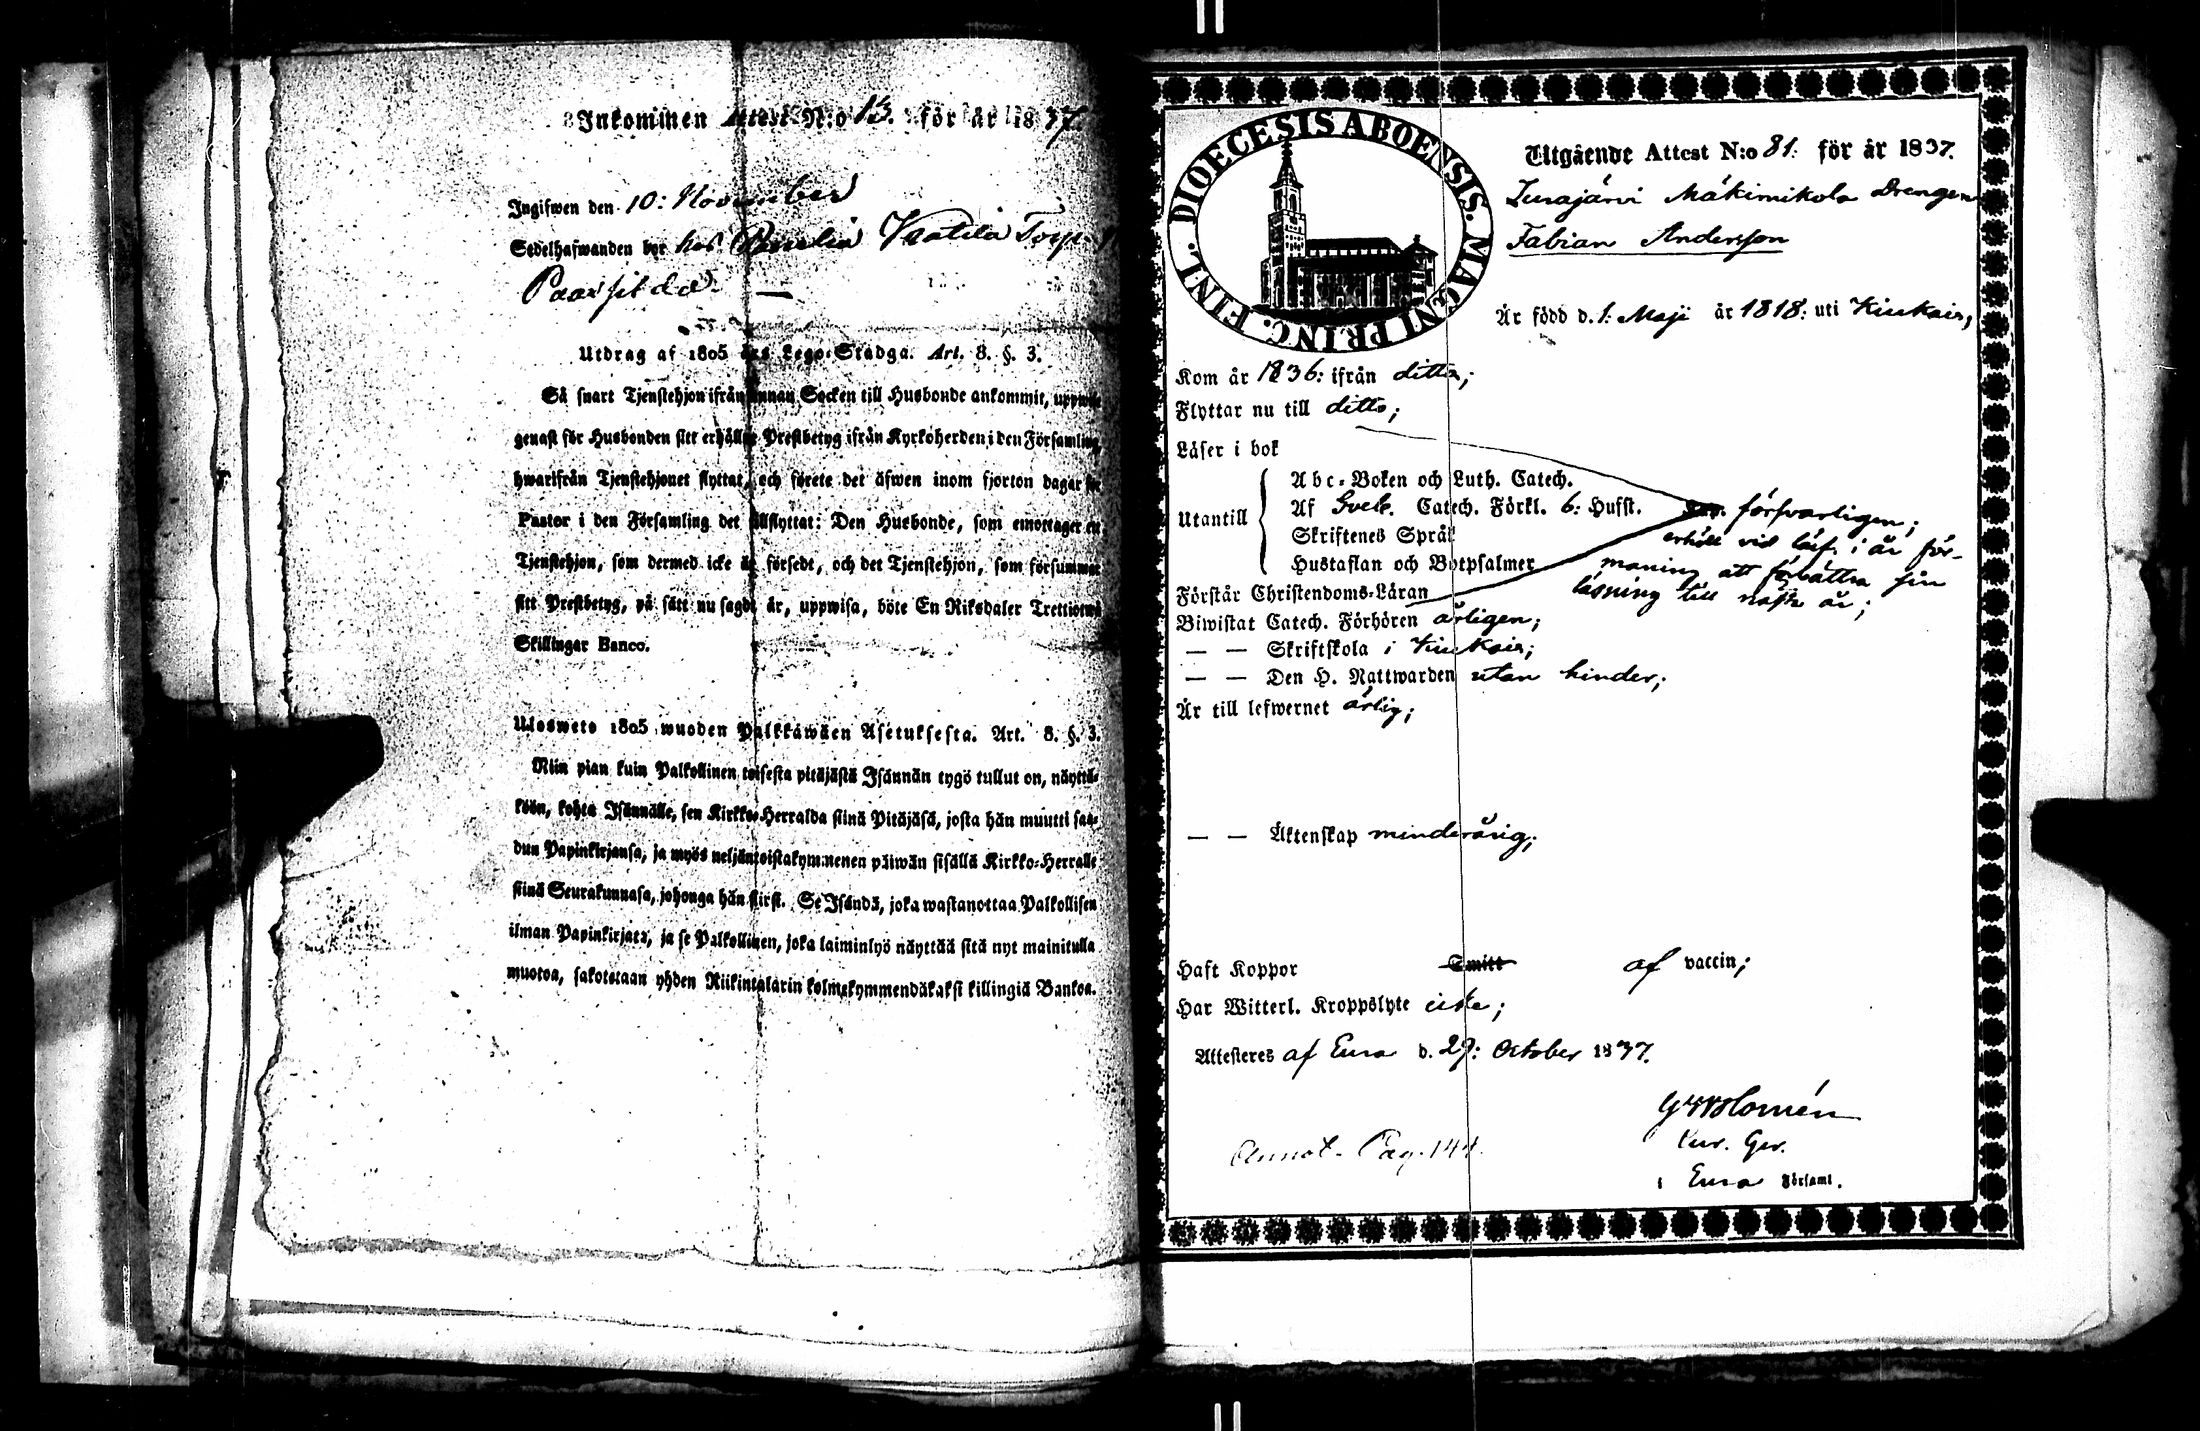 Inkommen Attest N:o 13. för år 1837.
Ingifwen den 10: November
Sedelhafwanden bor hos Torp
Utdrag af 1805 års Lego-Stadga. Art. 8. §. 3.
Så snart Tjenstehjon ifrån annan Socken till Husbonde ankommit, uppwise
genast för Husbonden sitt erhållne Prestbetyg ifrån Kyrkoherden i den Församling,
hwarifrån Tjenstehjonet flyttat, och förete det äfwen inom fjorton dagar för
Pastor i den Församling det tillflyttat: Den Husbonde, som emottager ett
Tjenstehjon, som dermed icke är försedt, och det Tjenstehjon, som försummat
sitt Prestbetyg, på sätt nu sagdt är, uppwisa, böte En Riksdaler Trettiotwå
Skillingar Banco.
Uloswete 1805 wuoden Palkkawäen Asetuksesta. Art. 8. §. 3.
Niin pian kuin Palkollinen toisesta pitäjästä Isännän tygö tullut on, näyttä-
köön, kohta Isännälle, sen Kirkko-Herralda siinä Pitäjäsä, josta hän muutti saa-
dun Papinkirjansa, ja myös neljäntoistakymmenen päiwän sisällä Kirkko-Herralle
siinä Seurakunnasa, johonga hän siirst. Se Isändä, joka wastanottaa Palkollisen
ilman Papinkirjata, ja se Palkollinen, joka laiminlyö näyttää sitä nyt mainitulla
muotoa, sakotetaan yhden Riikintalarin kolmekymmendäkaksi killingiä Bankoa.
DIOECESIS ABOENSIS. MAGNI PRINC. FINL.
Utgående Attest N:o 81: för år 1837.
Eurajärvi Mäkimikola Drengen
Fabian Andersson
Är född d. 1: Maji år 1818: uti Kiukais,
Kom år 1836: ifrån ditto;
Flyttar nu till ditto;
Läser i bok
Utantill
Abc-Boken och Luth. Catech.
Af Sveb. Catech. Förkl. 6: Hufst.
Skriftenes Språk
Hustaflan och Botpsalmer
försvarligen;
erhöll vid läsf. i år för-
maning att förbättra sin
läsning till näste år;
Förstår Christendoms-Läran
Biwistat Catech. Förhören årligen;
— — Skriftskola i Kiukais;
— — Den H. Nattwarden utan hinder;
Är till lefwernet ärlig;
— — Äktenskap minderårig;
Haft Koppor Smitt af vaccin;
Har Witterl. Kroppslyte icke;
Attesteres af Eura d. 29: October 1837.
Homén
Cur. Ger.
Annot. Pag. 144.
i Eura Församl.